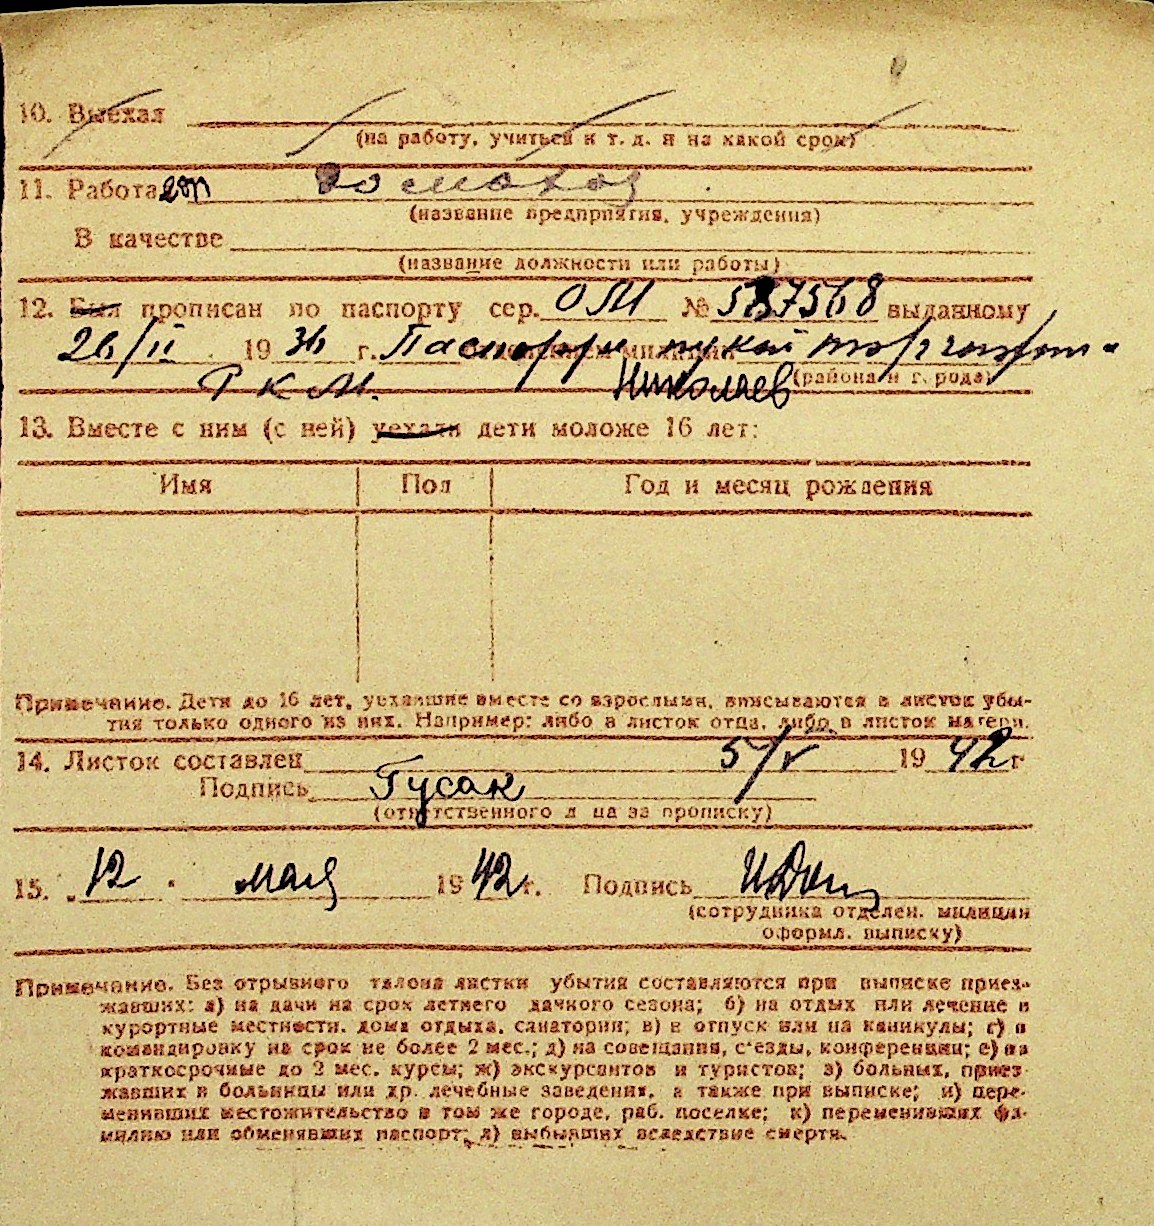 10. Выехал
(на работу, учиться и т. д. и на какой срок)
11. Работа
(название предприятия, учреждения)
В качестве
(название должности или работы)
12. Был прописан по паспорту сер. ОМ № выданному
26/II 1936 г. Паспортн
Р К М. Николаев (района и города)
13. Вместе с ним (с ней) уехали дети моложе 16 лет:
Имя Пол Год и месяц рождения
Примечание. Дети до 16 лет, уехавшие вместе со взрослыми, вписываются в листок убы-
тия только одного из них. Например: либо в листок отца, либо в листок матери.
14. Листок составлен 5/V 1942 г
Подпись Гусак
(ответственного лица за прописку)
15. „12" мая 1942 г. Подпись
(сотрудника отделен. милиции
оформл. выписку)
Примечание. Без отрывного талона листки убытия составляются при выписке приез-
жавших: а) на дачи на срок летнего дачного сезона; б) на отдых или лечение в
курортные местности, дома отдыха, санатории; в) в отпуск или на каникулы; г) в
командировку на срок не более 2 мес.; д) на совещания, с'езды, конференции; е) на
краткосрочные до 2 мес. курсы; ж) экскурсантов и туристов; з) больных, приез-
жавших в больницы или др. лечебные заведения, а также при выписке; и) пере-
менивших местожительство в том же городе, раб. поселке; к) переменивших фа-
милию или обменявших паспорт; л) выбывших вследствие смерти.